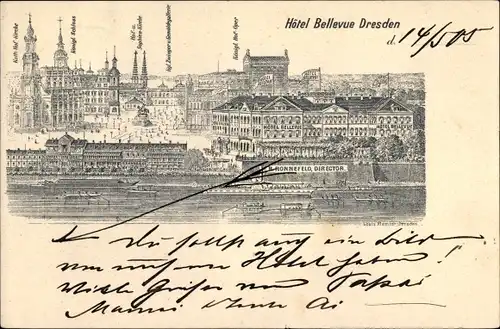 Hôtel Bellevue Dresden
d. 14/5 05
Kath. Hof Kirche
Königl. Schloss
Hof u. Sophien-Kirche
Kgl. Zwinger u. Gemäldegallerie
Königl. Hof-Oper
R. RONNEFELD, DIRECTOR.
Du sollst auch ein Bild
von unserm Hotel haben!
Viele Grüße von
Manni